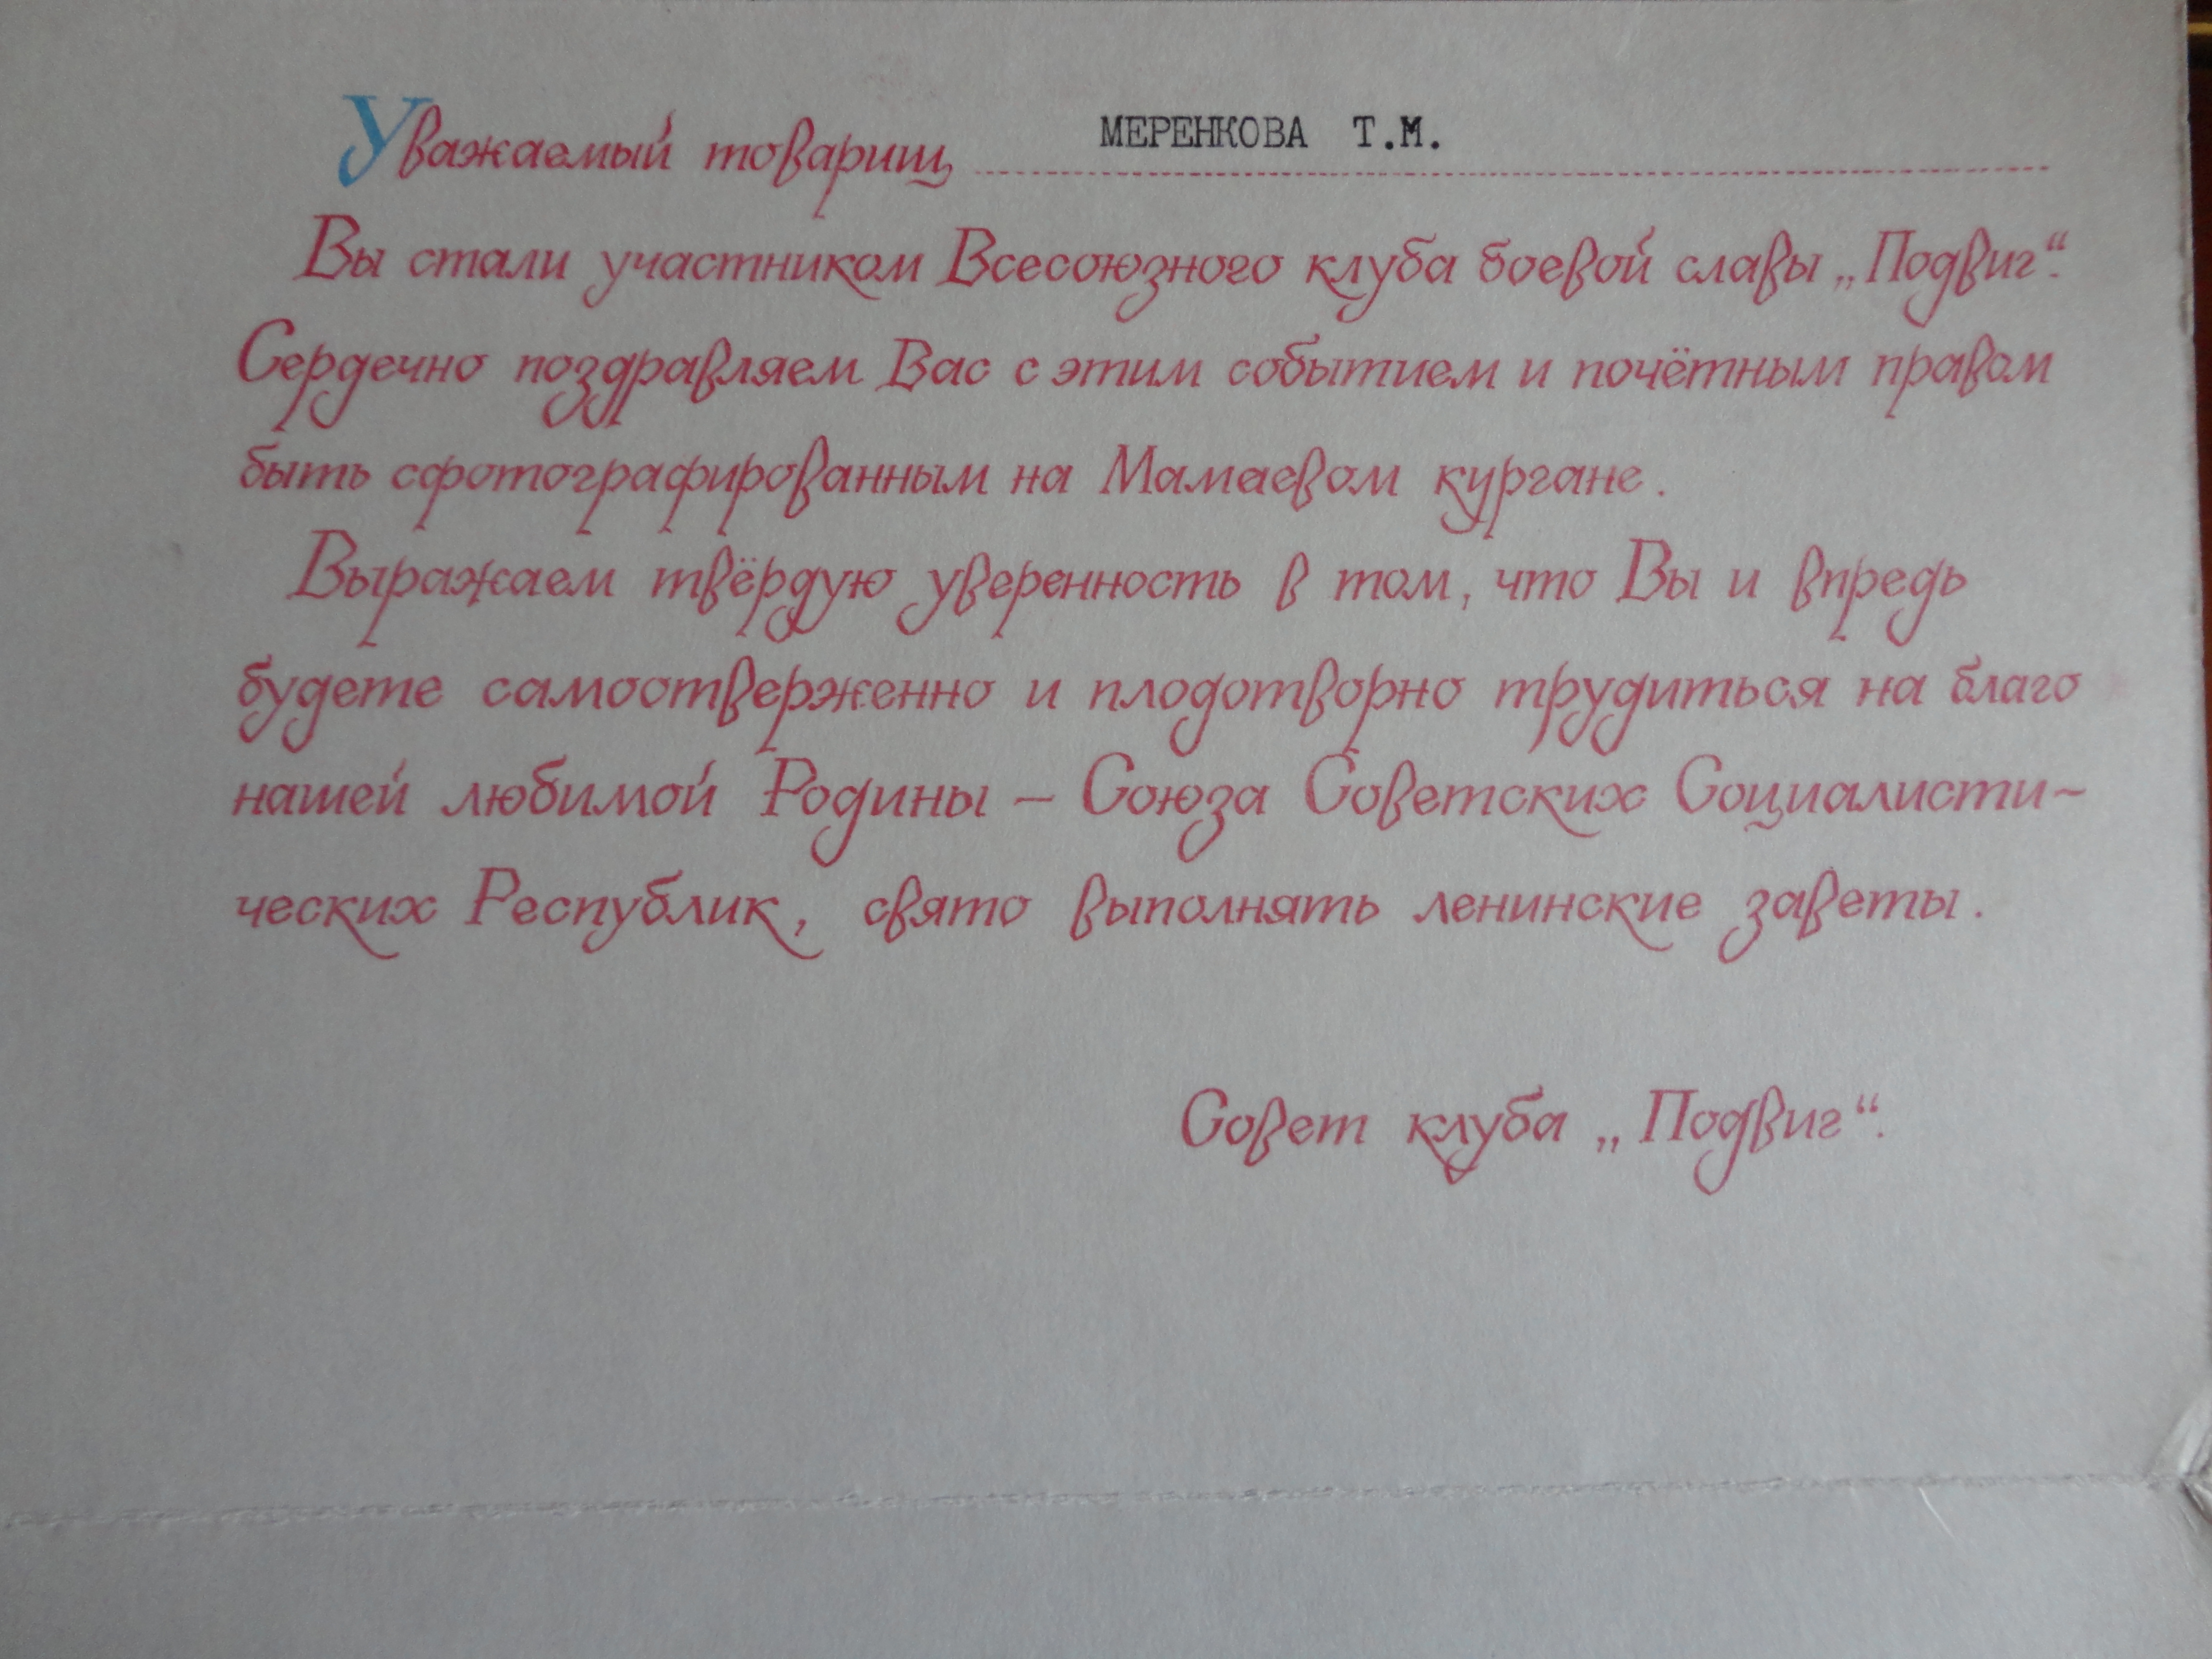 Уважаемый товарищ МЕРЕНКОВА Т.М.
Вы стали участником Всесоюзного клуба боевой славы „Подвиг“.
Сердечно поздравляем Вас с этим событием и почётным правом
быть сфотографированным на Мамаевом кургане.
Выражаем твёрдую уверенность в том, что Вы и впредь
будете самоотверженно и плодотворно трудиться на благо
нашей любимой Родины — Союза Советских Социалисти-
ческих Республик, свято выполнять ленинские заветы.
Совет клуба „Подвиг“.